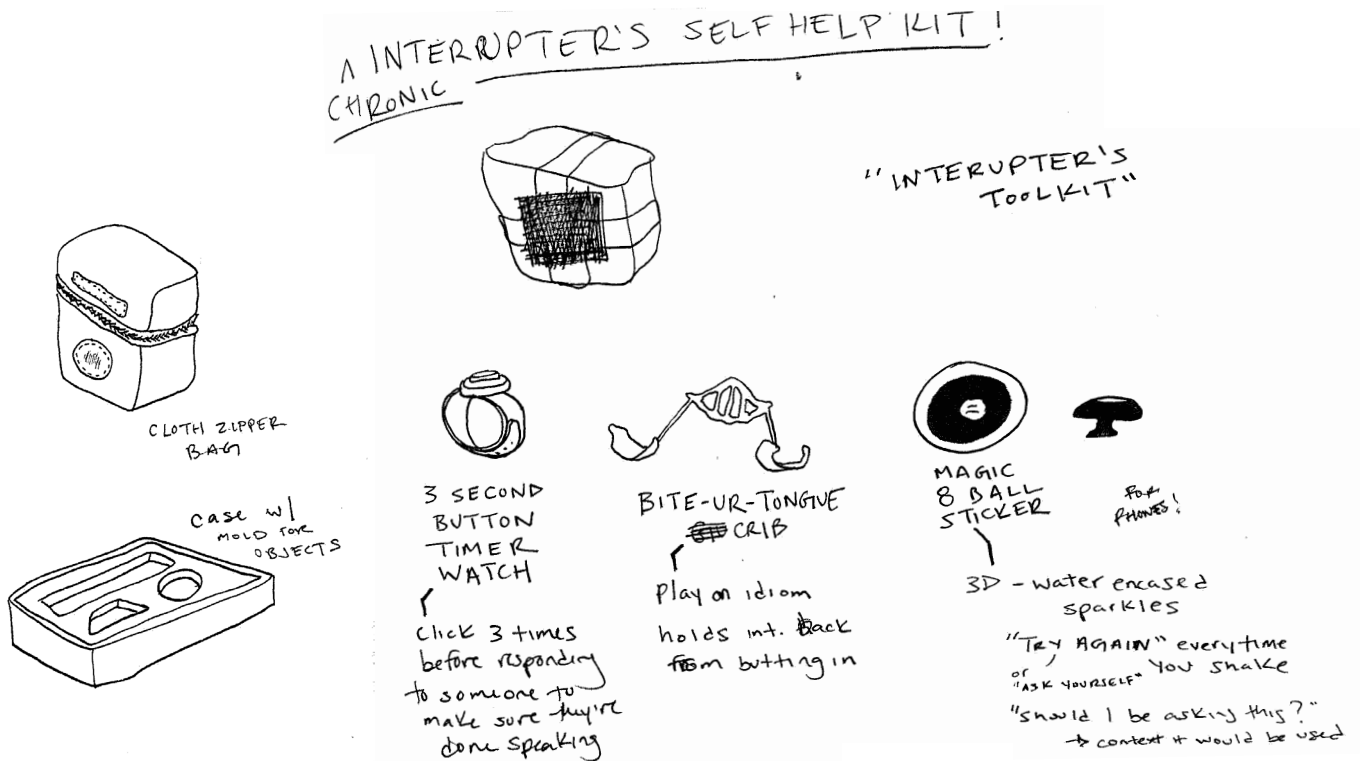 ^ INTERRUPTER'S SELF HELP KIT!
CHRONIC
"INTERUPTER'S
TOOLKIT"
CLOTH ZIPPER
BAG
case w/
MOLD FOR
OBJECTS
3 SECOND
BUTTON
TIMER
WATCH
click 3 times
before responding
to someone to
make sure they're
done speaking
BITE-UR-TONGUE
CRIB
Play on idiom
holds int. back
from butting in
MAGIC
8 BALL
STICKER
FOR
PHONES!
3D - water encased
sparkles
"TRY AGAIN" everytime
or "ASK YOURSELF" you shake
"should I be asking this?"
→ context it would be used